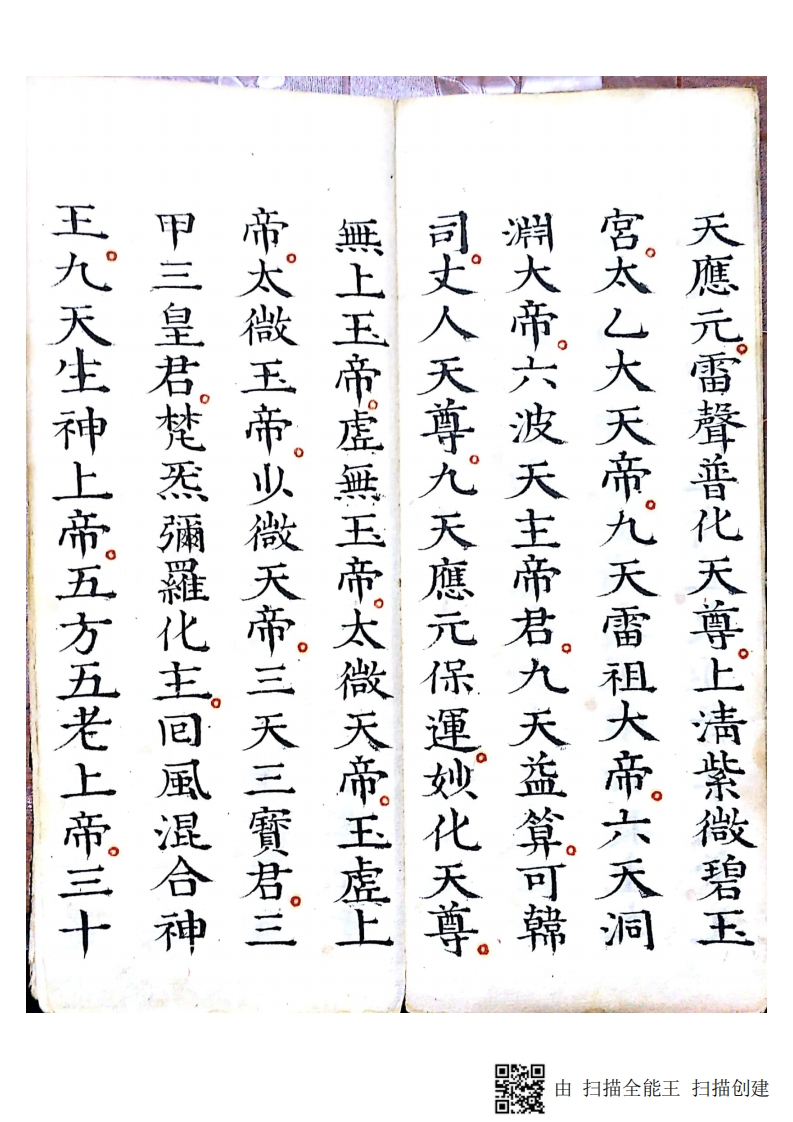 天應元。雷聲普化天尊。上清紫微碧玉
宮。太乙大天帝。九天雷祖大帝。六天洞
淵大帝。六波天主帝君。九天益算。可韓
司。丈人天尊。九天應元保運。妙化天尊。
無上玉帝。虛無玉帝。太微天帝。玉虛上
帝。太微玉帝。少微天帝。三天三寶君。三
甲三皇君。梵炁彌羅化主。回風混合神
王。九天生神上帝。五方五老上帝。三十
由 扫描全能王 扫描创建